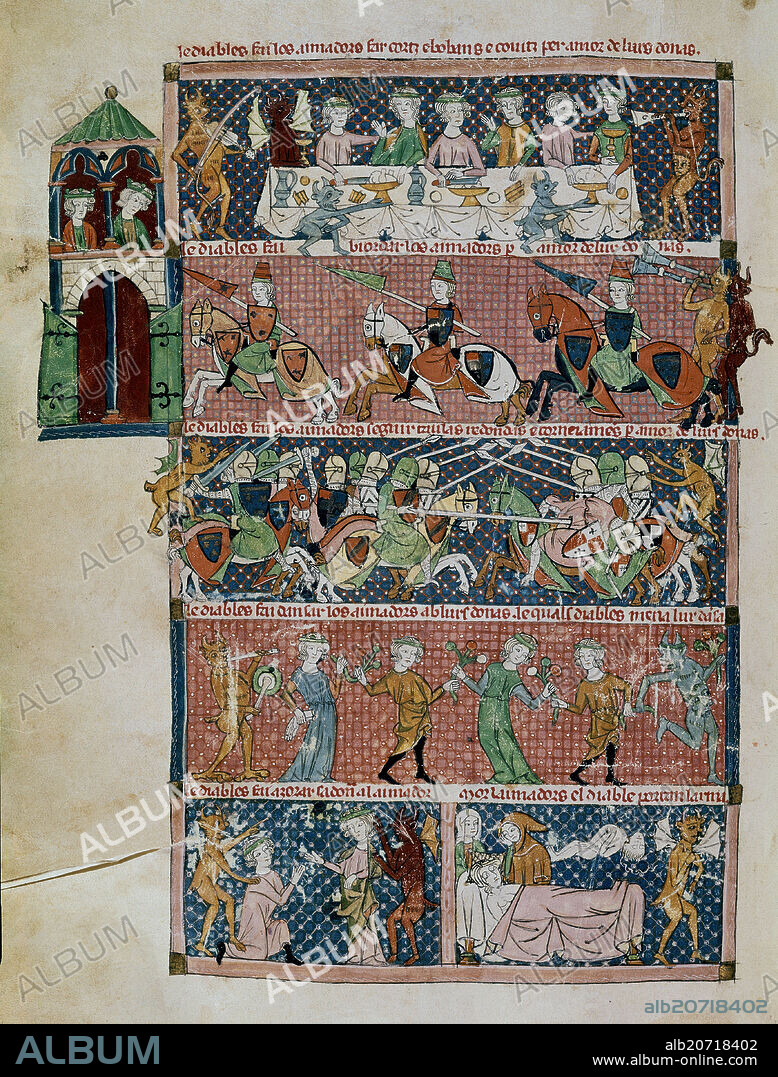 le diables fai los aimadors far cortz e bobans e covitz per amor de lurs donas.
le diables fai biordar los aimadors p amor de lur donas.
le diables fai los aimadors seguir taulas redondas e torneiames p amor de lurs donas.
le diables fai dansar los aimadors ab lurs donas. le quals diables mena lur dasa
le diables fai azorar sa dona al aimador
mor l aimadors e l diable porton l arma
alb20718402
ALBUM
alb20718402
www.album-online.com